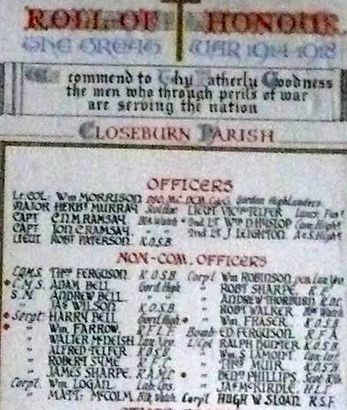 ROLL OF HONOUR.
THE GREAT WAR 1914-1918
We commend to Thy Fatherly Goodness
the men who through perils of war
are serving the nation
CLOSEBURN PARISH
OFFICERS
Lt. COL. Wm MORRISON, DSO, M.C. D.C.M. Gordon Highlanders
MAJOR HERBT MURRAY LIEUT VICTR TELFER Lancs. Fus.
CAPT C.N.M. RAMSAY Blk Watch 2nd Lt Wm D HYSLOP Cam. High.
CAPT IONC. RAMSAY 2nd Lt J. LEIGHTON A & S. High
LIEUT ROBT PATERSON K.O.S.B.
NON-COM. OFFICERS
C.Q.M.S. THOs FERGUSON K.O.S.B. Corpl Wm ROBINSON
C.M.S. ADAM BELL Gord. High " ROBT SHARPE
S.M. ANDREW BELL " ANDREW THORBURN R.O.C.
" JAs WILSON K.O.S.B. " ROBT WALKER Blk Watch
Sergt. HARRY BELL Gord. High. " Wm FRASER K.O.S.B.
" Wm FARROW R.F.C. Bomb. ED. FERGUSON R.F.A.
" WALTER McNEISH L/Cpl RALPH HUNTER K.O.S.B.
" ALFRED TELFER K.O.S.B. " Wm LAMONT
" ROBERT SYME " THOs MUIR K.O.S.B.
" JAMES SHARPE R.A.M.C. " BENJn PHILLIPS Scot. Rifs.
Corpl. Wm LOGAN Lab. Cps. " JAs McKIRDLE H.L.I.
" MATT. McCOLM Blk Watch Corpl HUGH W. SLOAN R.S.F.